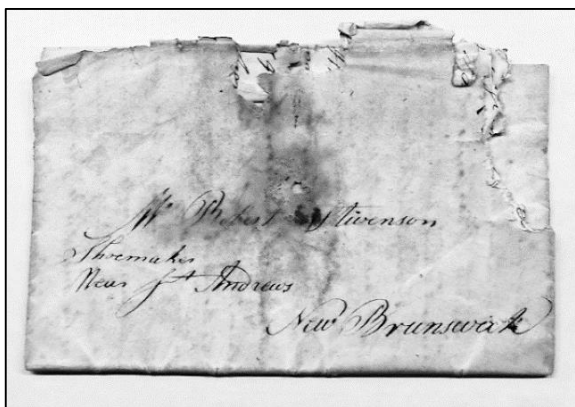 Mr Robert Stivenson
Shoemaker
Near St Andrews
New Brunswick